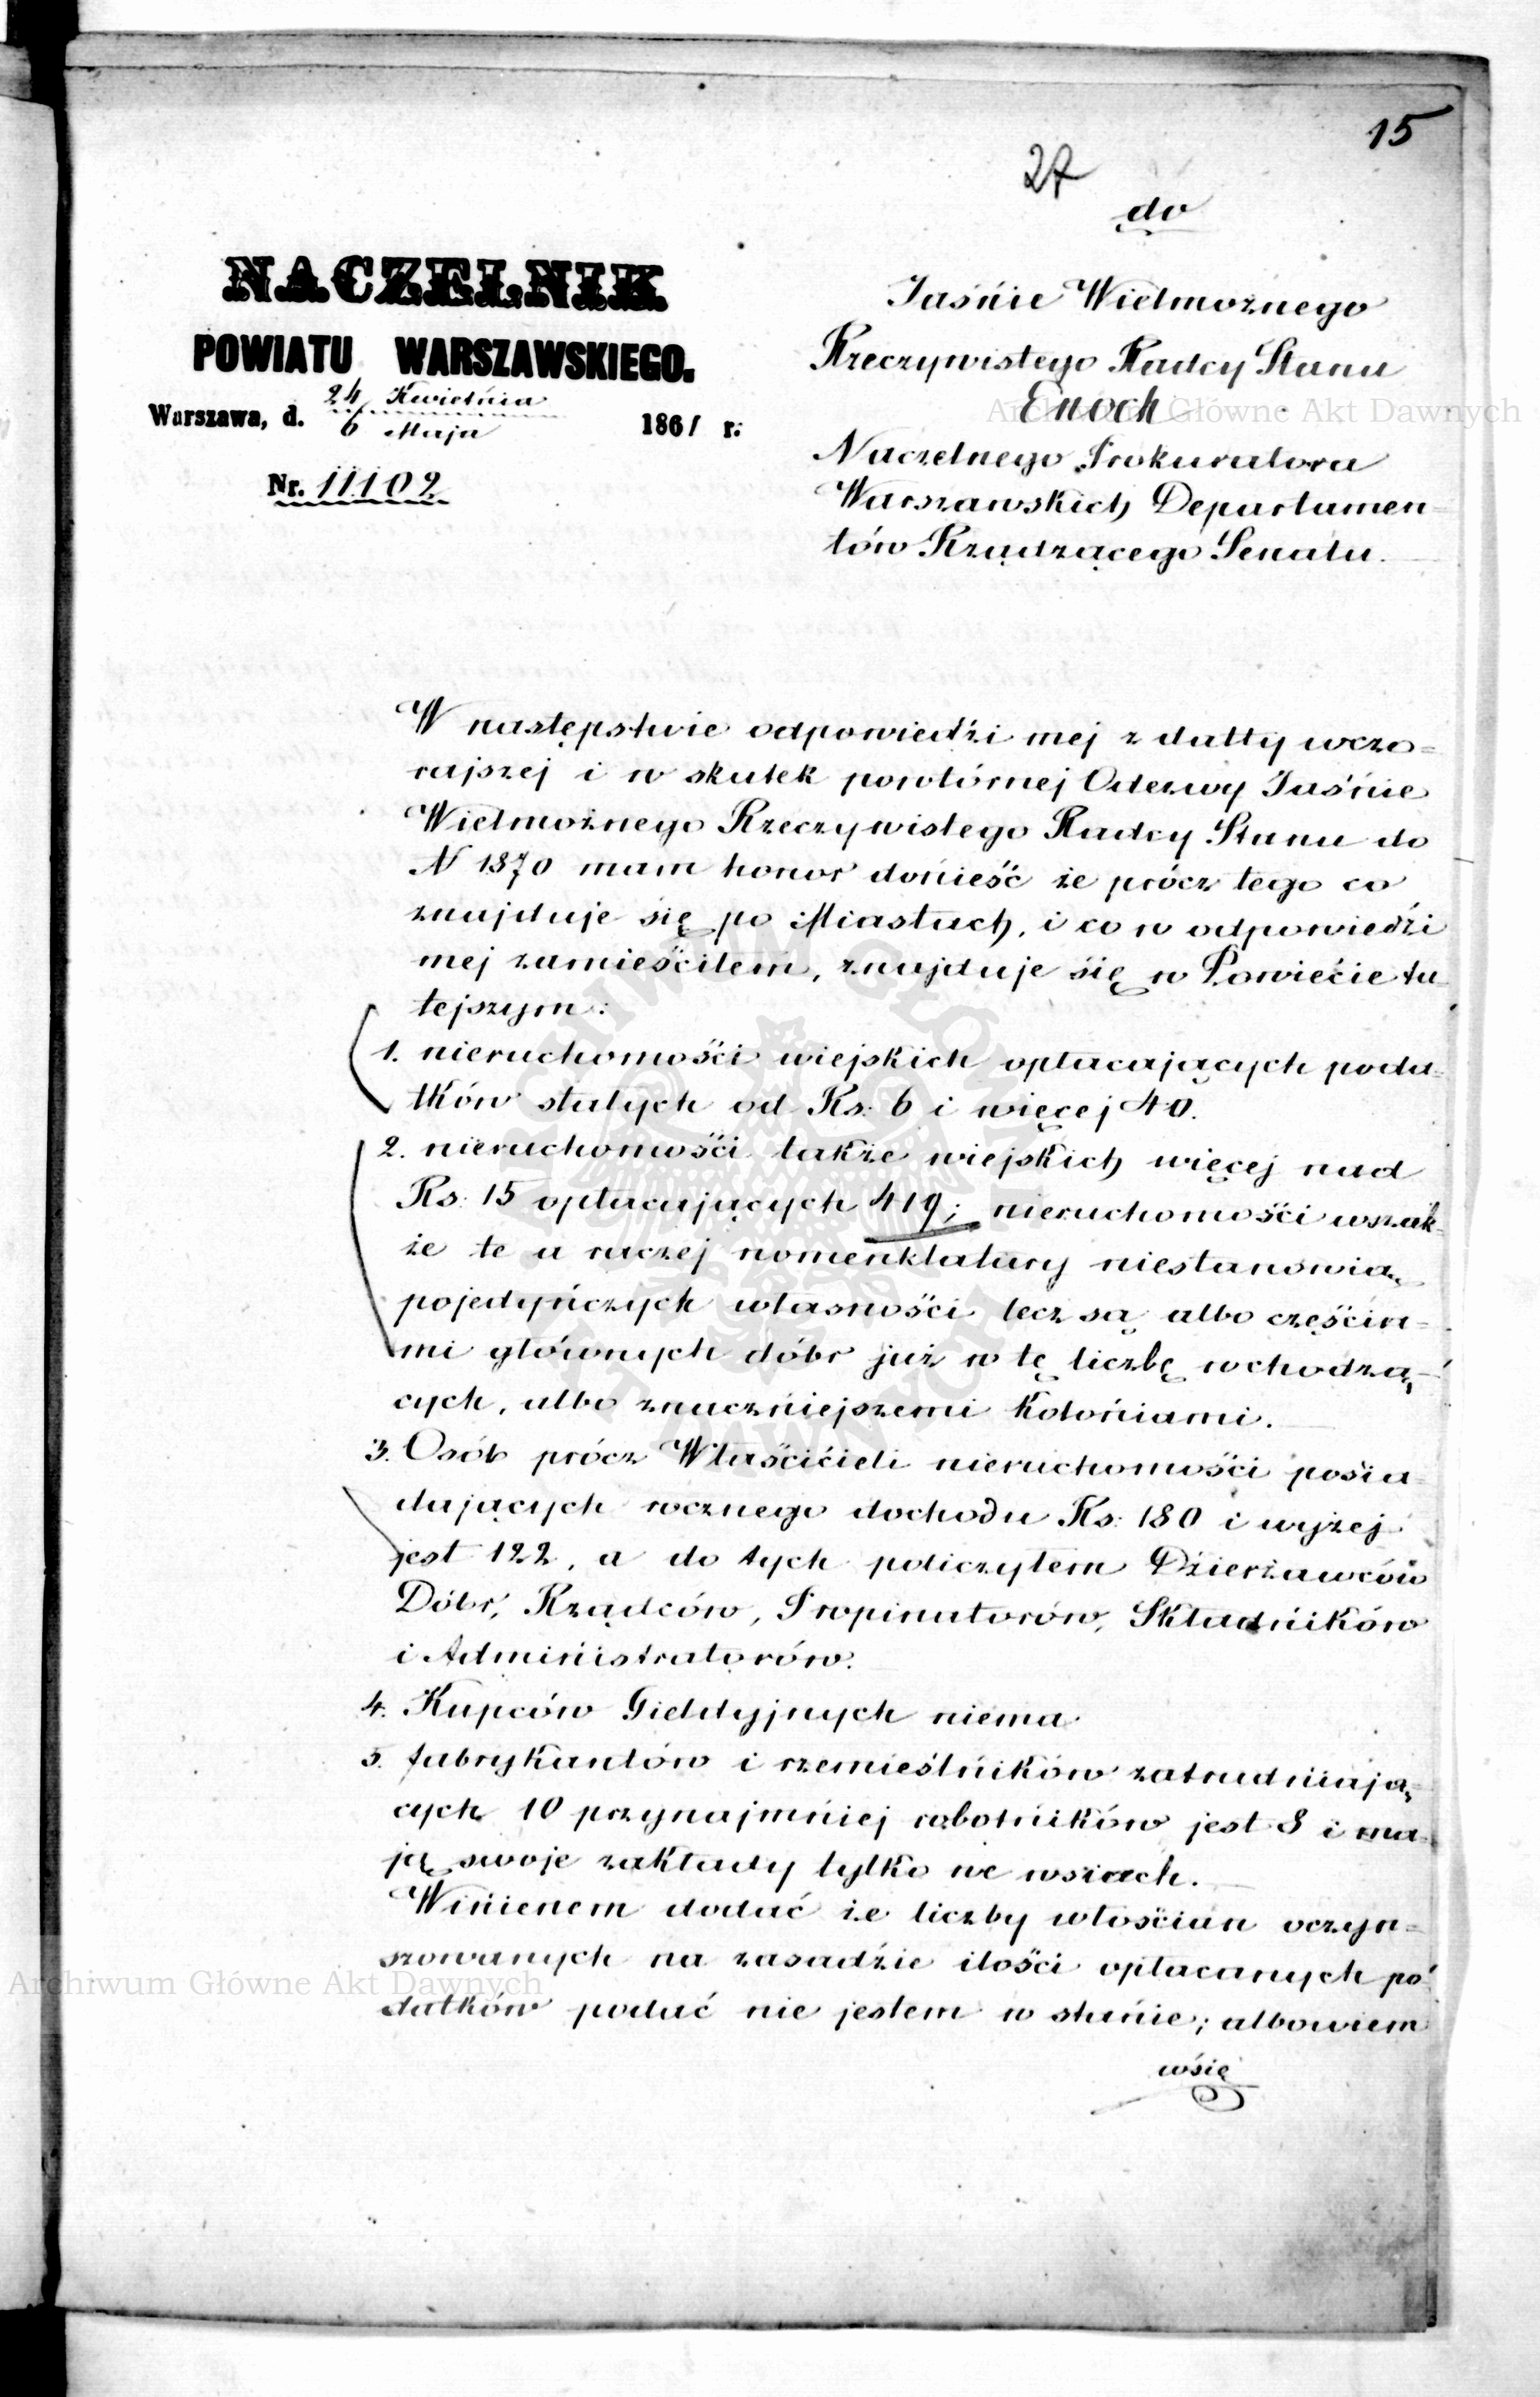 15
27
do
NACZELNIK
POWIATU WARSZAWSKIEGO.
Warszawa, d. 24 Kwietnia / 6 Maja 1861 r.
Nr. 11102.
Jaśnie Wielmożnego
Rzeczywistego Radcy Stanu
Enoch
Naczelnego Prokuratora
Warszawskich Departamen-
tów Rządzącego Senatu.
W następstwie odpowiedzi mej z datty wczo-
rajszej i w skutek powtórnej Odezwy Jaśnie
Wielmożnego Rzeczywistego Radcy Stanu do
N 1870 mam honor donieść że prócz tego co
znajduje się po Miastach, i co w odpowiedzi
mej zamieściłem, znajduje się w Powiecie tu-
tejszym:
1. nieruchomości wiejskich opłacających poda-
tków stałych od Rs: 6 i więcej 40.
2. nieruchomości także wiejskich więcej nad
Rs: 15 opłacających 419; nieruchomości wszak-
że te a raczej nomenklatury niestanowią
pojedyńczych własności lecz są albo częścia-
mi głównych dóbr już w tę liczbę wchodzą-
cych, albo znaczniejszemi Koloniami.
3. Osób prócz Właścicieli nieruchomości posia-
dających rocznego dochodu Rs: 180 i wyżej
jest 122, a do tych policzyłem Dzierżawców
Dóbr, Rządców, Propinatorów, Składników
i Administratorów.
4. Kupców Giełdyjnych niema.
5. fabrykantów i rzemieślników zatrudniają-
cych 10 przynajmniej robotników jest 8 i ma-
ją swoje zakłady tylko we wsiach.
Winienem dodać że liczby włościan oczyn-
szowanych na zasadzie ilości opłacanych po-
datków podać nie jestem w stanie; albowiem
wsię
Archiwum Główne Akt Dawnych
Archiwum Główne Akt Dawnych